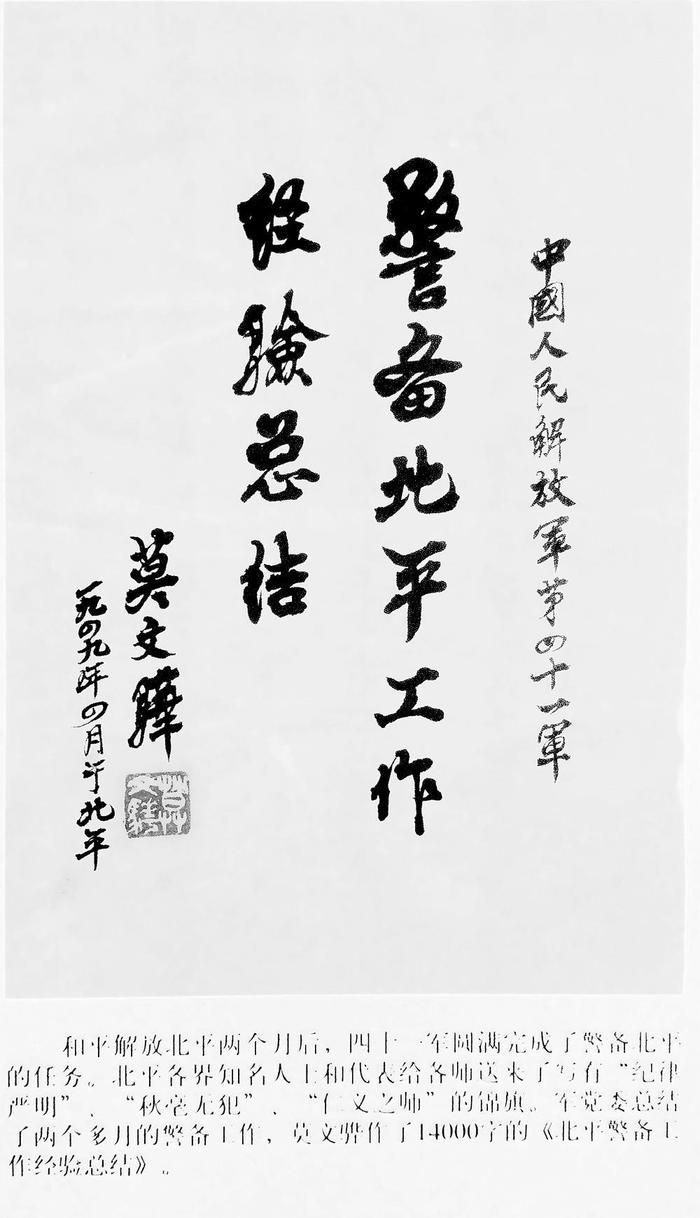 中國人民解放軍第四十一軍
警备北平工作
经验总结
莫文骅
一九四九年四月于北平
和平解放北平两个月后，四十一军圆满完成了警备北平
的任务。北平各界知名人士和代表给各师送来了写有“纪律
严明”、“秋毫无犯”、“仁义之师”的锦旗。军党委总结
了两个多月的警备工作，莫文骅作了14000字的《北平警备工
作经验总结》。